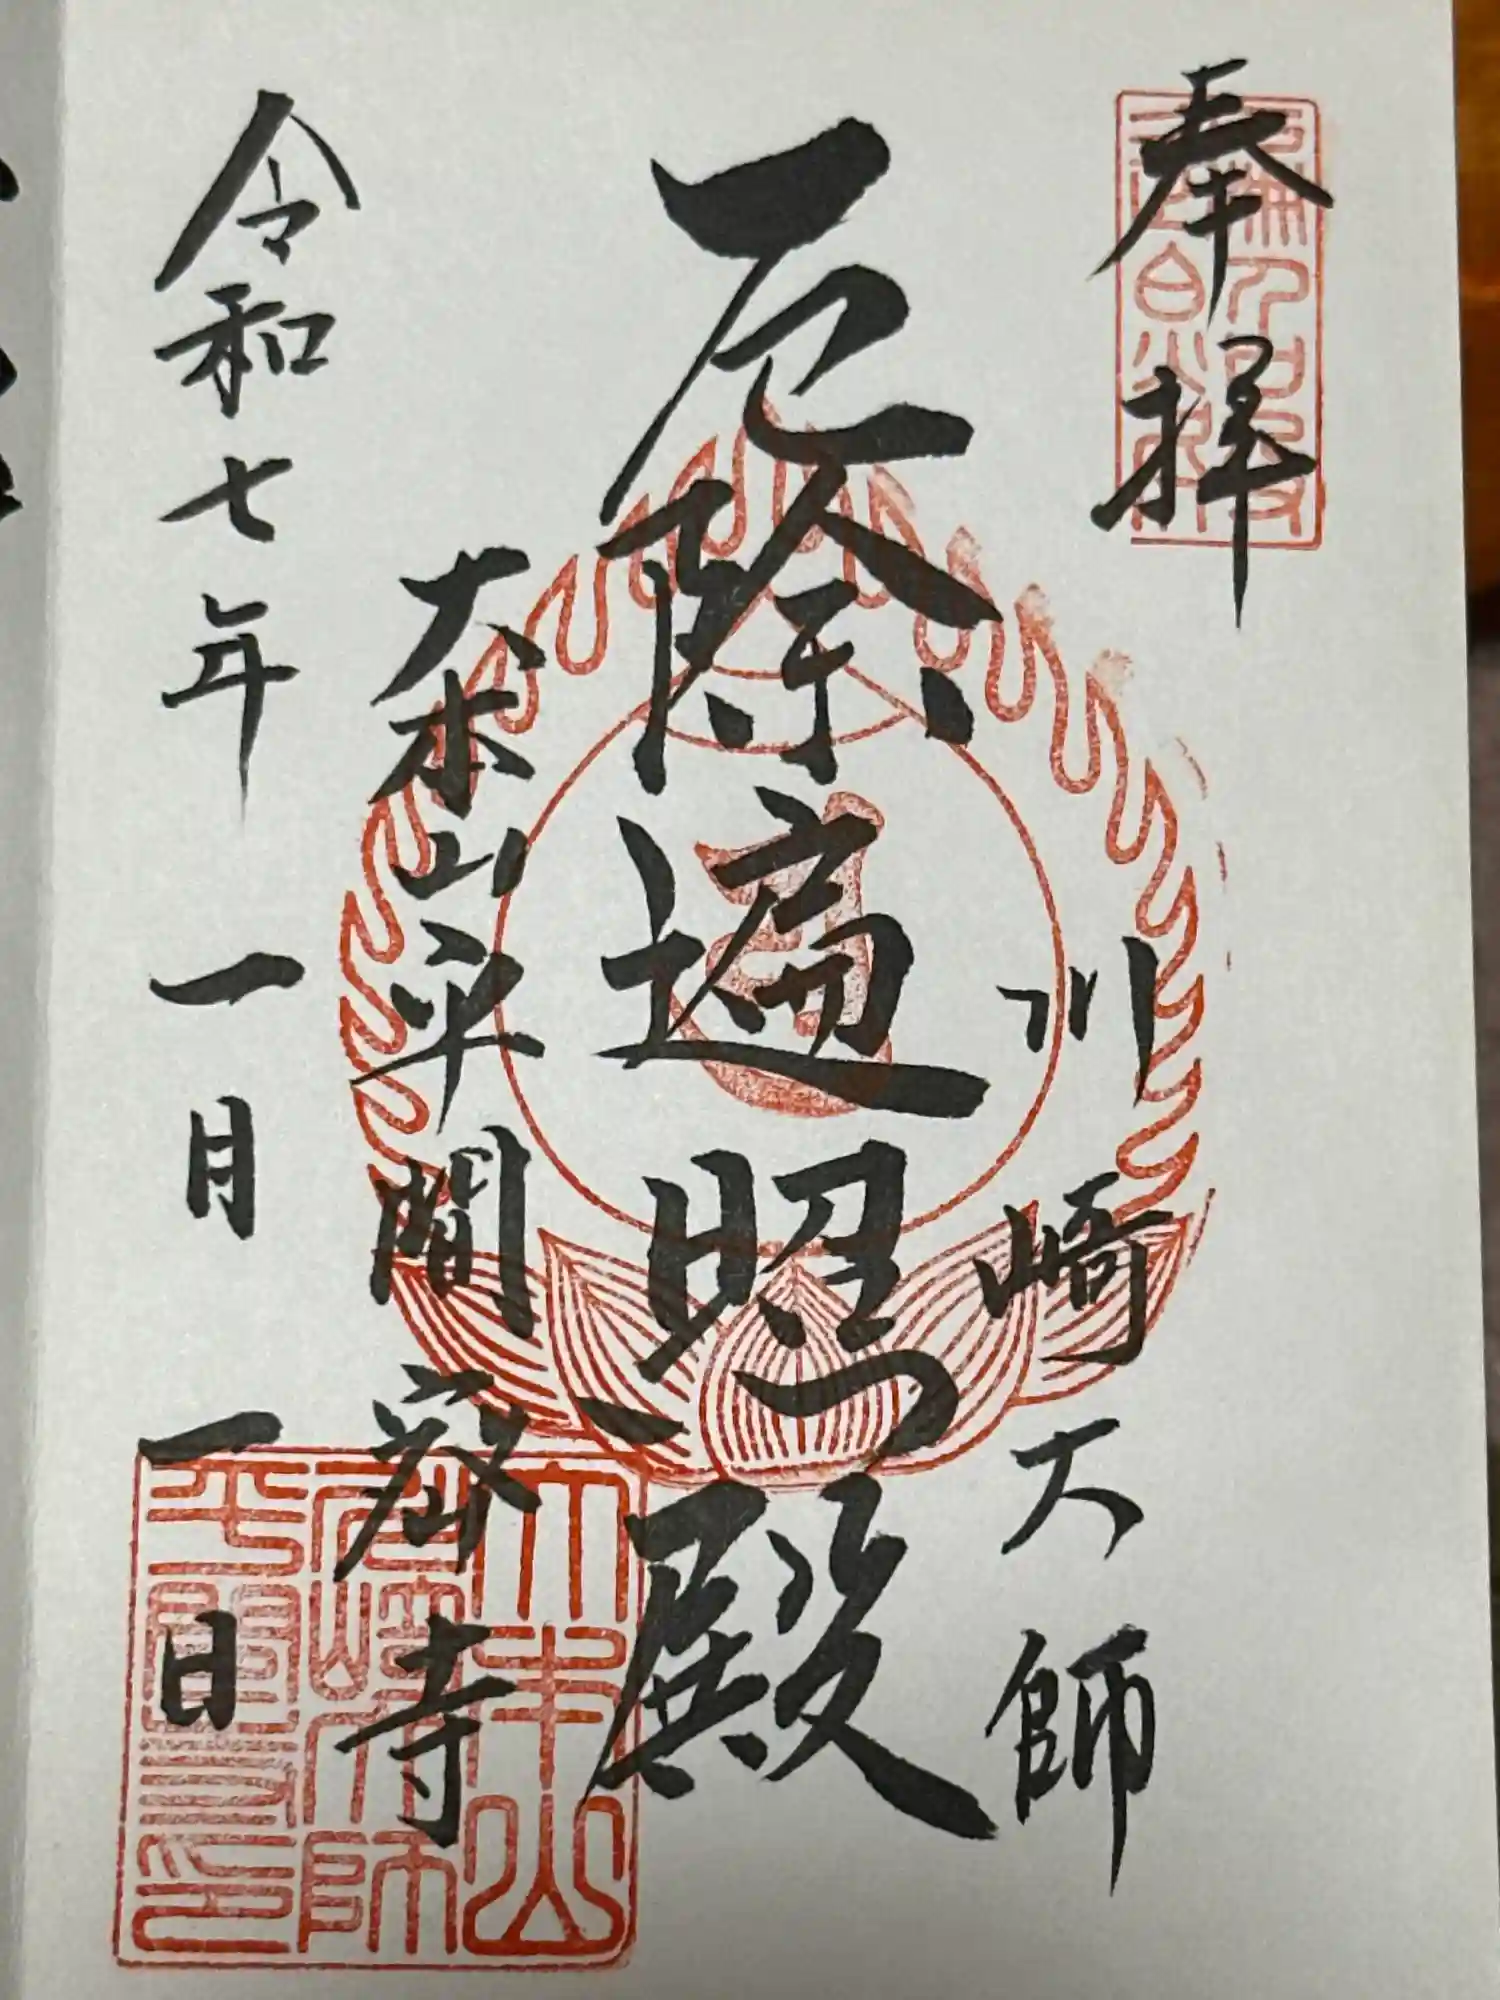 奉拝
川崎大師
厄除遍照殿
大本山平間寺
令和七年一月一日
大本山
川崎大師
平間寺印